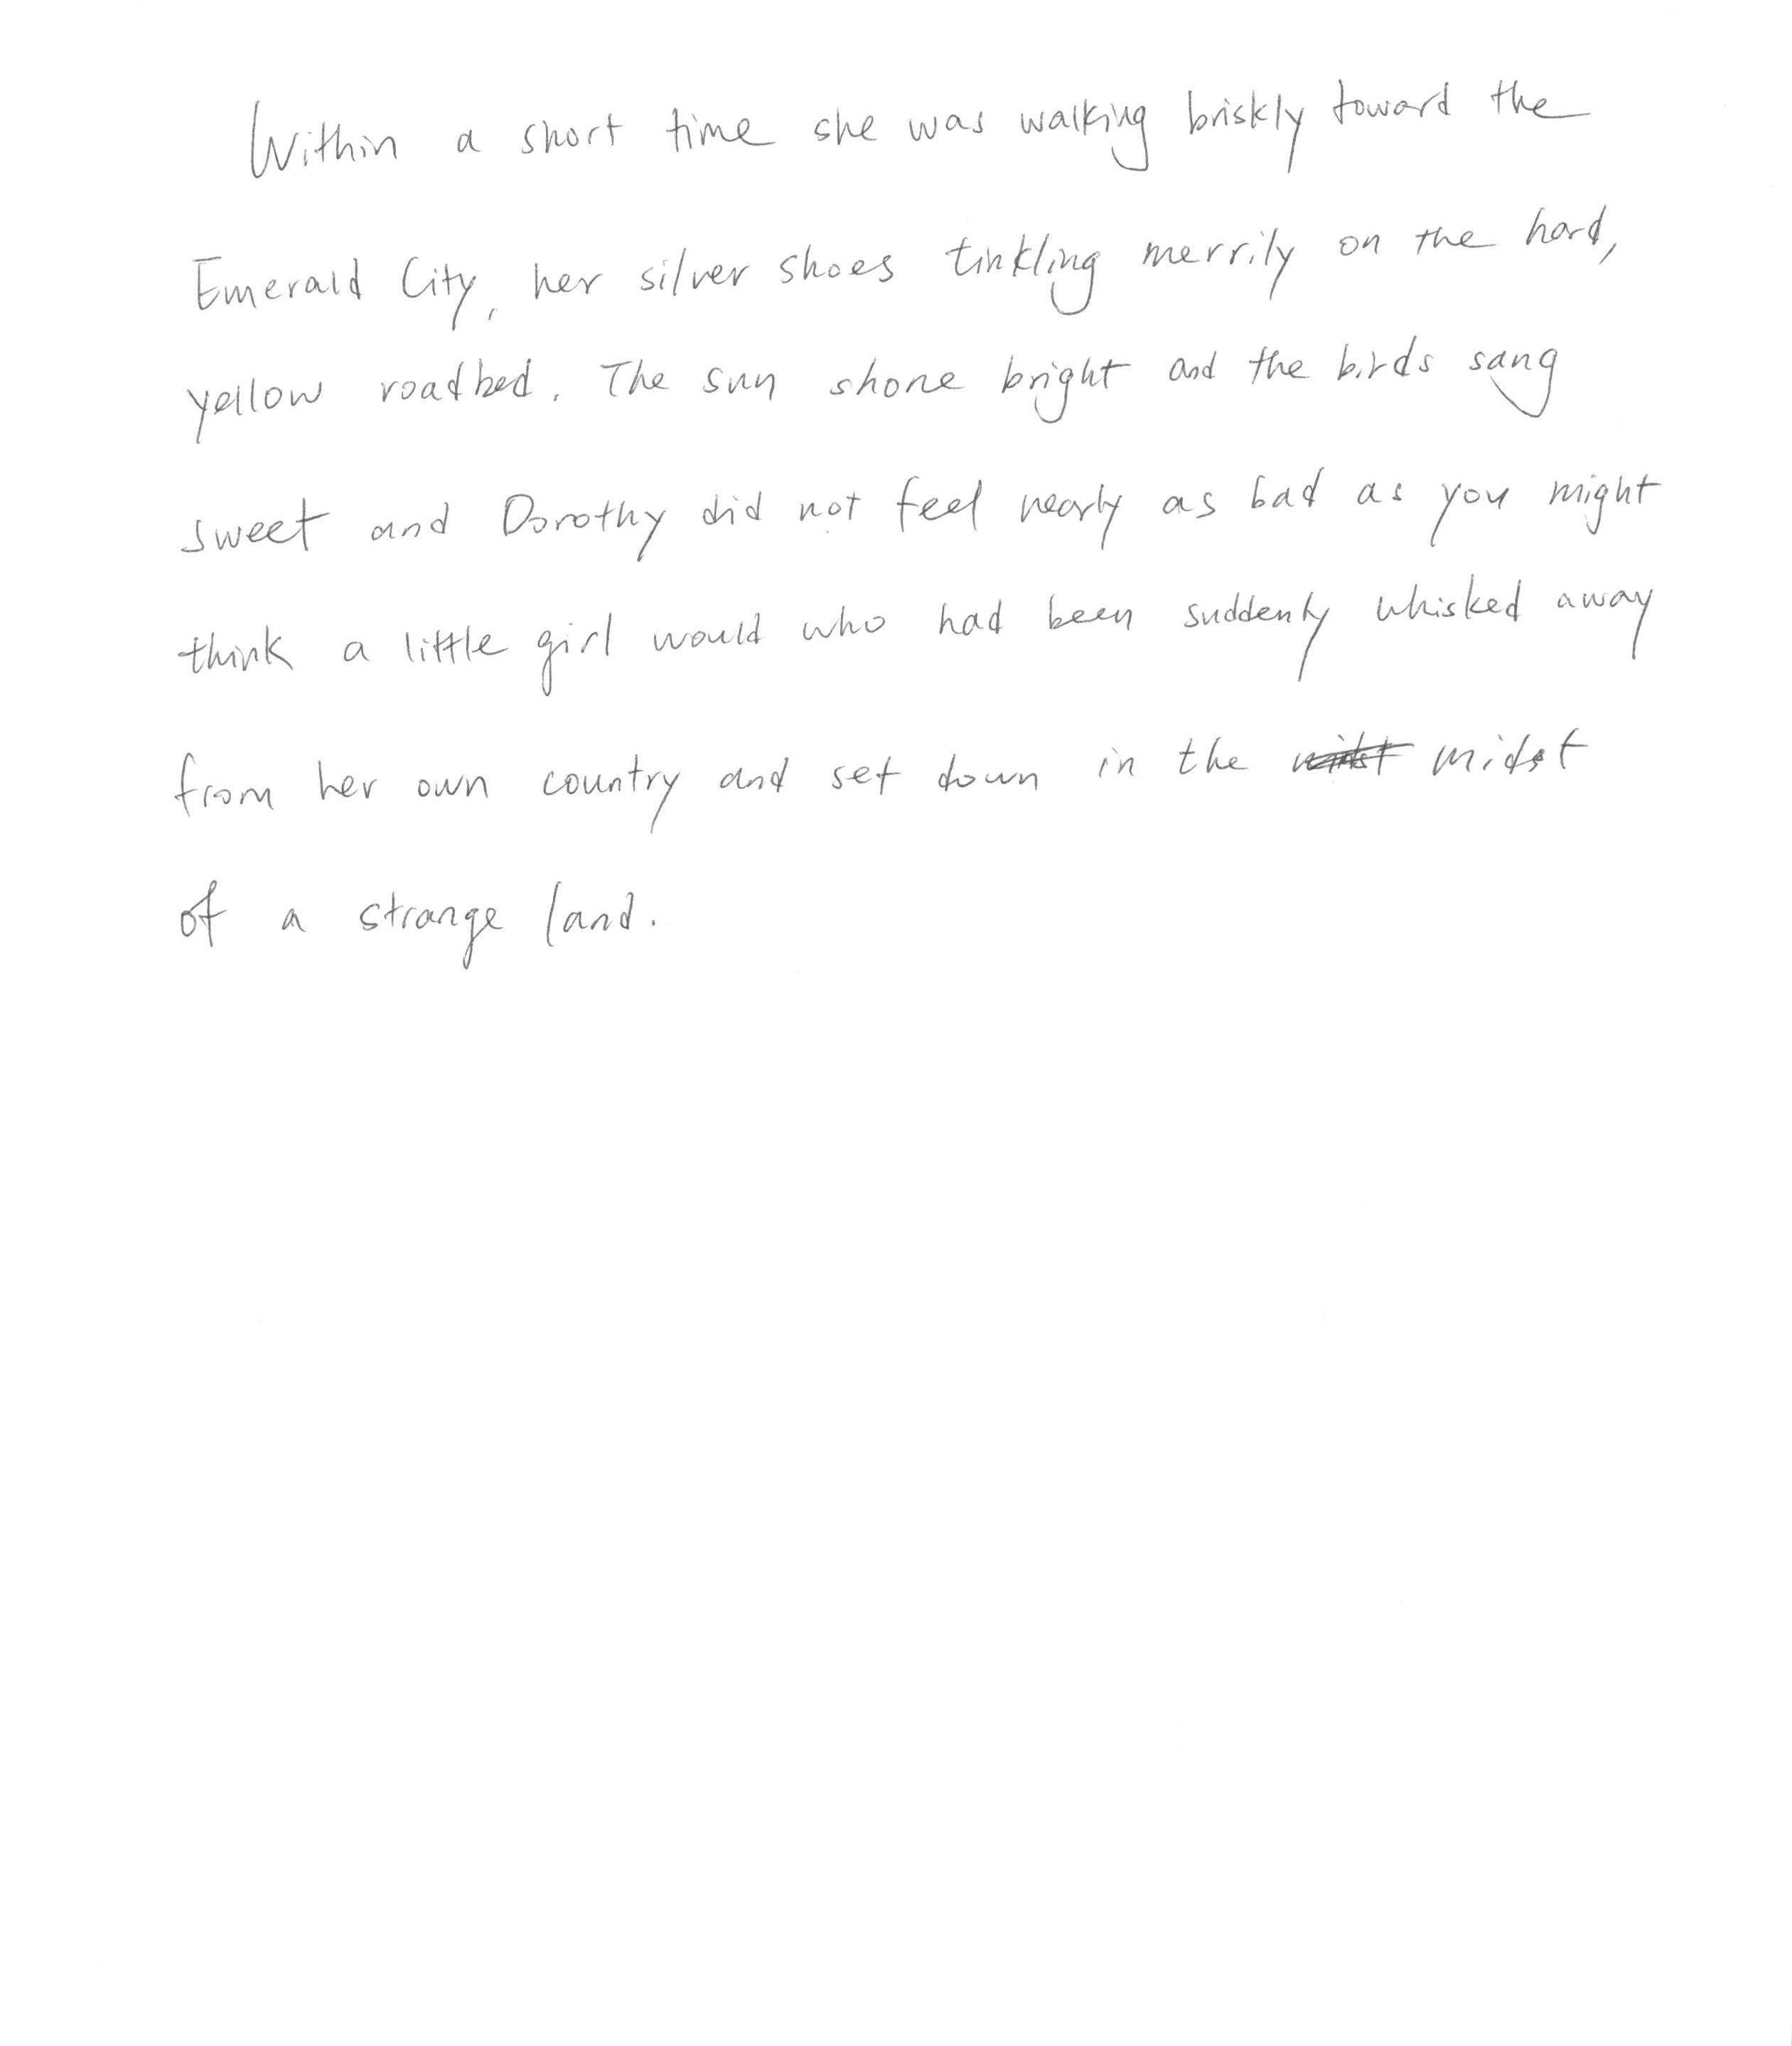 Within a short time she was walking briskly toward the
Emerald City, her silver shoes tinkling merrily on the hard,
yellow roadbed. The sun shone bright and the birds sang
sweet and Dorothy did not feel nearly as bad as you might
think a little girl would who had been suddenly whisked away
from her own country and set down in the midst
of a strange land.